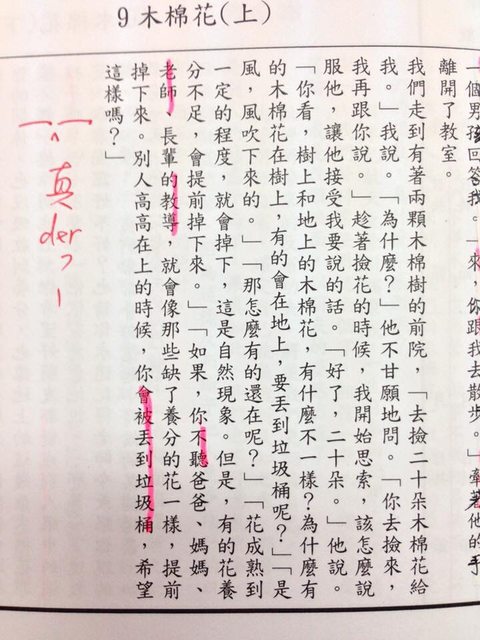 9 木棉花(上)
一個男孩回答我。「來，你跟我去散步。」牽著他的手
離開了教室。
我們走到有著兩顆木棉樹的前院，「去撿二十朵木棉花給
我。」我說。「為什麼？」他不甘願地問。「你去撿來，
我再跟你說。」趁著撿花的時候，我開始思索，該怎麼說
服他，讓他接受我要說的話。「好了，二十朵。」他說。
「你看，樹上和地上的木棉花，有什麼不一樣？為什麼有
的木棉花在樹上，有的會在地上，要丟到垃圾桶呢？」「是
風，風吹下來的。」「那怎麼有的還在呢？」「花成熟到
一定的程度，就會掉下，這是自然現象。但是，有的花養
分不足，會提前掉下來。」「如果，你不聽爸爸、媽媽、
老師、長輩的教導，就會像那些缺了養分的花一樣，提前
掉下來。別人高高在上的時候，你會被丟到垃圾桶，希望
這樣嗎？」
真
der